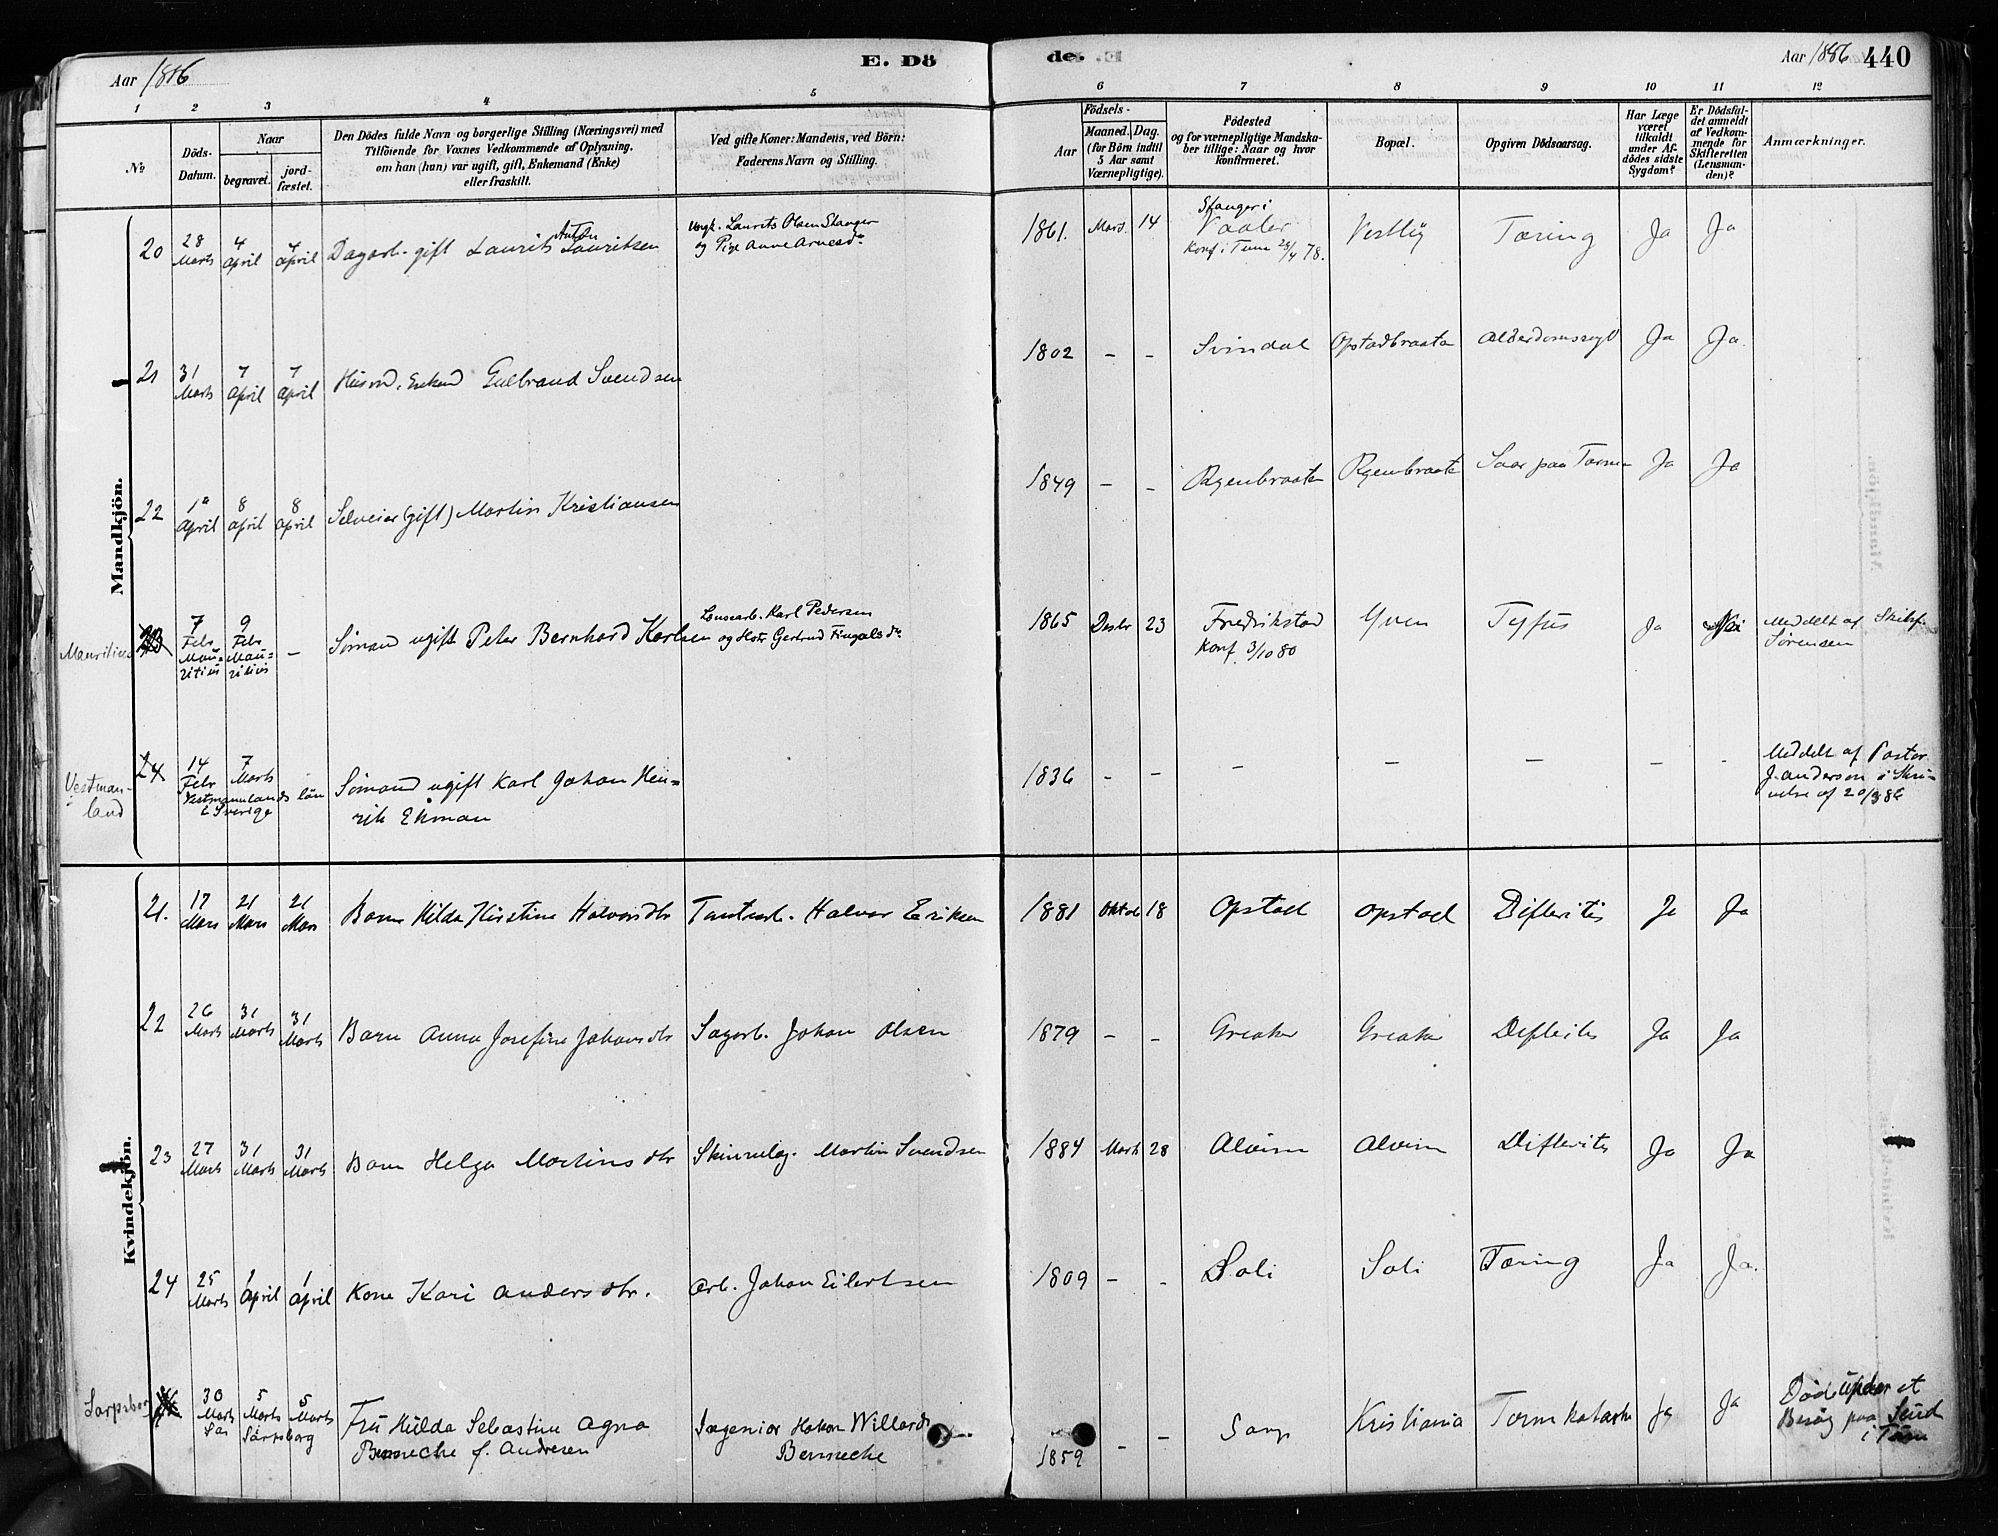 Aar 1886
E. Dö
de.
Aar 1886 440
1 2 3 4 5 6 7 8 9 10 11 12
No
Döds-Datum.
Naar
begravet.
jord-fæstet.
Den Dödes fulde Navn og borgerlige Stilling (Næringsvei) med
Tilföiende for Voxnes Vedkommende af Oplysning,
om han (hun) var ugift, gift, Enkemand (Enke)
eller fraskilt.
Ved gifte Koner: Mandens, ved Börn:
Faderens Navn og Stilling.
Födsels-
Aar
Maaned. Dag.
(for Börn indtil
5 Aar samt
Værnepligtige).
Födested
og for værnepligtige Mandska-
ber tillige: Naar og hvor
konfirmeret.
Bopæl.
Opgiven Dödsaarsag.
Har Læge
været
tilkaldt
under Af-
dödes sidste
Sygdom?
Er Dödsfal-
det anmeldt
af Vedkom-
mende for
Skifteretten
(Lensman-
den)?
Anmærkninger.
Mandkjön.
20 28 Marts 4 April 4 April Dagarb. gift Laurits Anton Lauritsen
Ungk. Laurits Olsen Stanger
og Pige Anne Arnesdr
1861. Mars. 14 Stanger i Vaaler
Konf. i Tune 28/4 78.
Vestby Tæring Ja Ja
21 31 Marts 7 April 7 April Husmd. Enkemd Gulbrand Svendsen
1802 - - Svindal Opstadbraaten Alderdomssygd Ja Ja.
22 1 April 8 April 8 April Selveier (gift) Martin Kristiansen
1849 - - Ryenbraaten Ryenbraaten Saar paa Tarmen Ja Ja
Mauritius 23 7 Febr Mauritius 9 Febr Mauritius - Sømand ugift Peter Bernhard Karlsen
Lensearb. Karl Pedersen
og Hstr Gertrud Fingalsdr
1865 Decbr 23 Fredrikstad
Konf. 3/10 80
Yven Tyfus Ja Nei Meddelt af Skibsf.
Sørensen
Vestmanland 24 14 Febr 7 Marts
Vestmannlands län
i Sverige
Sømand ugift Karl Johan Hen=
rik Ekman
1836 - - - - - - -
Meddelt af Pastor
J. Anderson i Skri=
velse af 20/3 86
Kvindekjön.
21. 17 Mars 21 Mars 21 Mars Barn Hilda Kirstine Halvorsdtr Tomtearb. Halvor Eriksen
1881 Oktob 18 Opstad Opstad Difteritis Ja Ja
22 26 Marts 31 Marts 31 Marts Barn Anna Josefine Johansdtr Sagarb. Johan Olsen
1879 - - Greaker Greaker Difterites Ja Ja
23 27 Marts 31 Marts 31 Marts Barn Helga Martinsdtr Martin Svendsen
1884 Marts 28 Alvim Alvim Difterites Ja Ja
24 25 Marts 1 April 1 April Kone Kari Andersdtr. Arb. Johan Eilertsen
1809 - - Soli Soli Tæring Ja Ja.
Sarpsborg 30 Marts 5 Marts 5 Marts
Sarpsborg
Fru Hulda Sebastine Agna
Bennecke f. Andresen
Ingeniør Hakon Willard
Bennecke
1859 - - Sarp Kristiania Tarmkatarrh Ja Ja
Død under et
Besøg paa Sund
i Tune